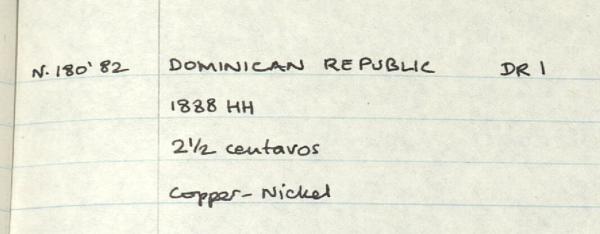 N. 180'82 DOMINICAN REPUBLIC DR 1
1888 HH
2 1/2 centavos
Copper-Nickel